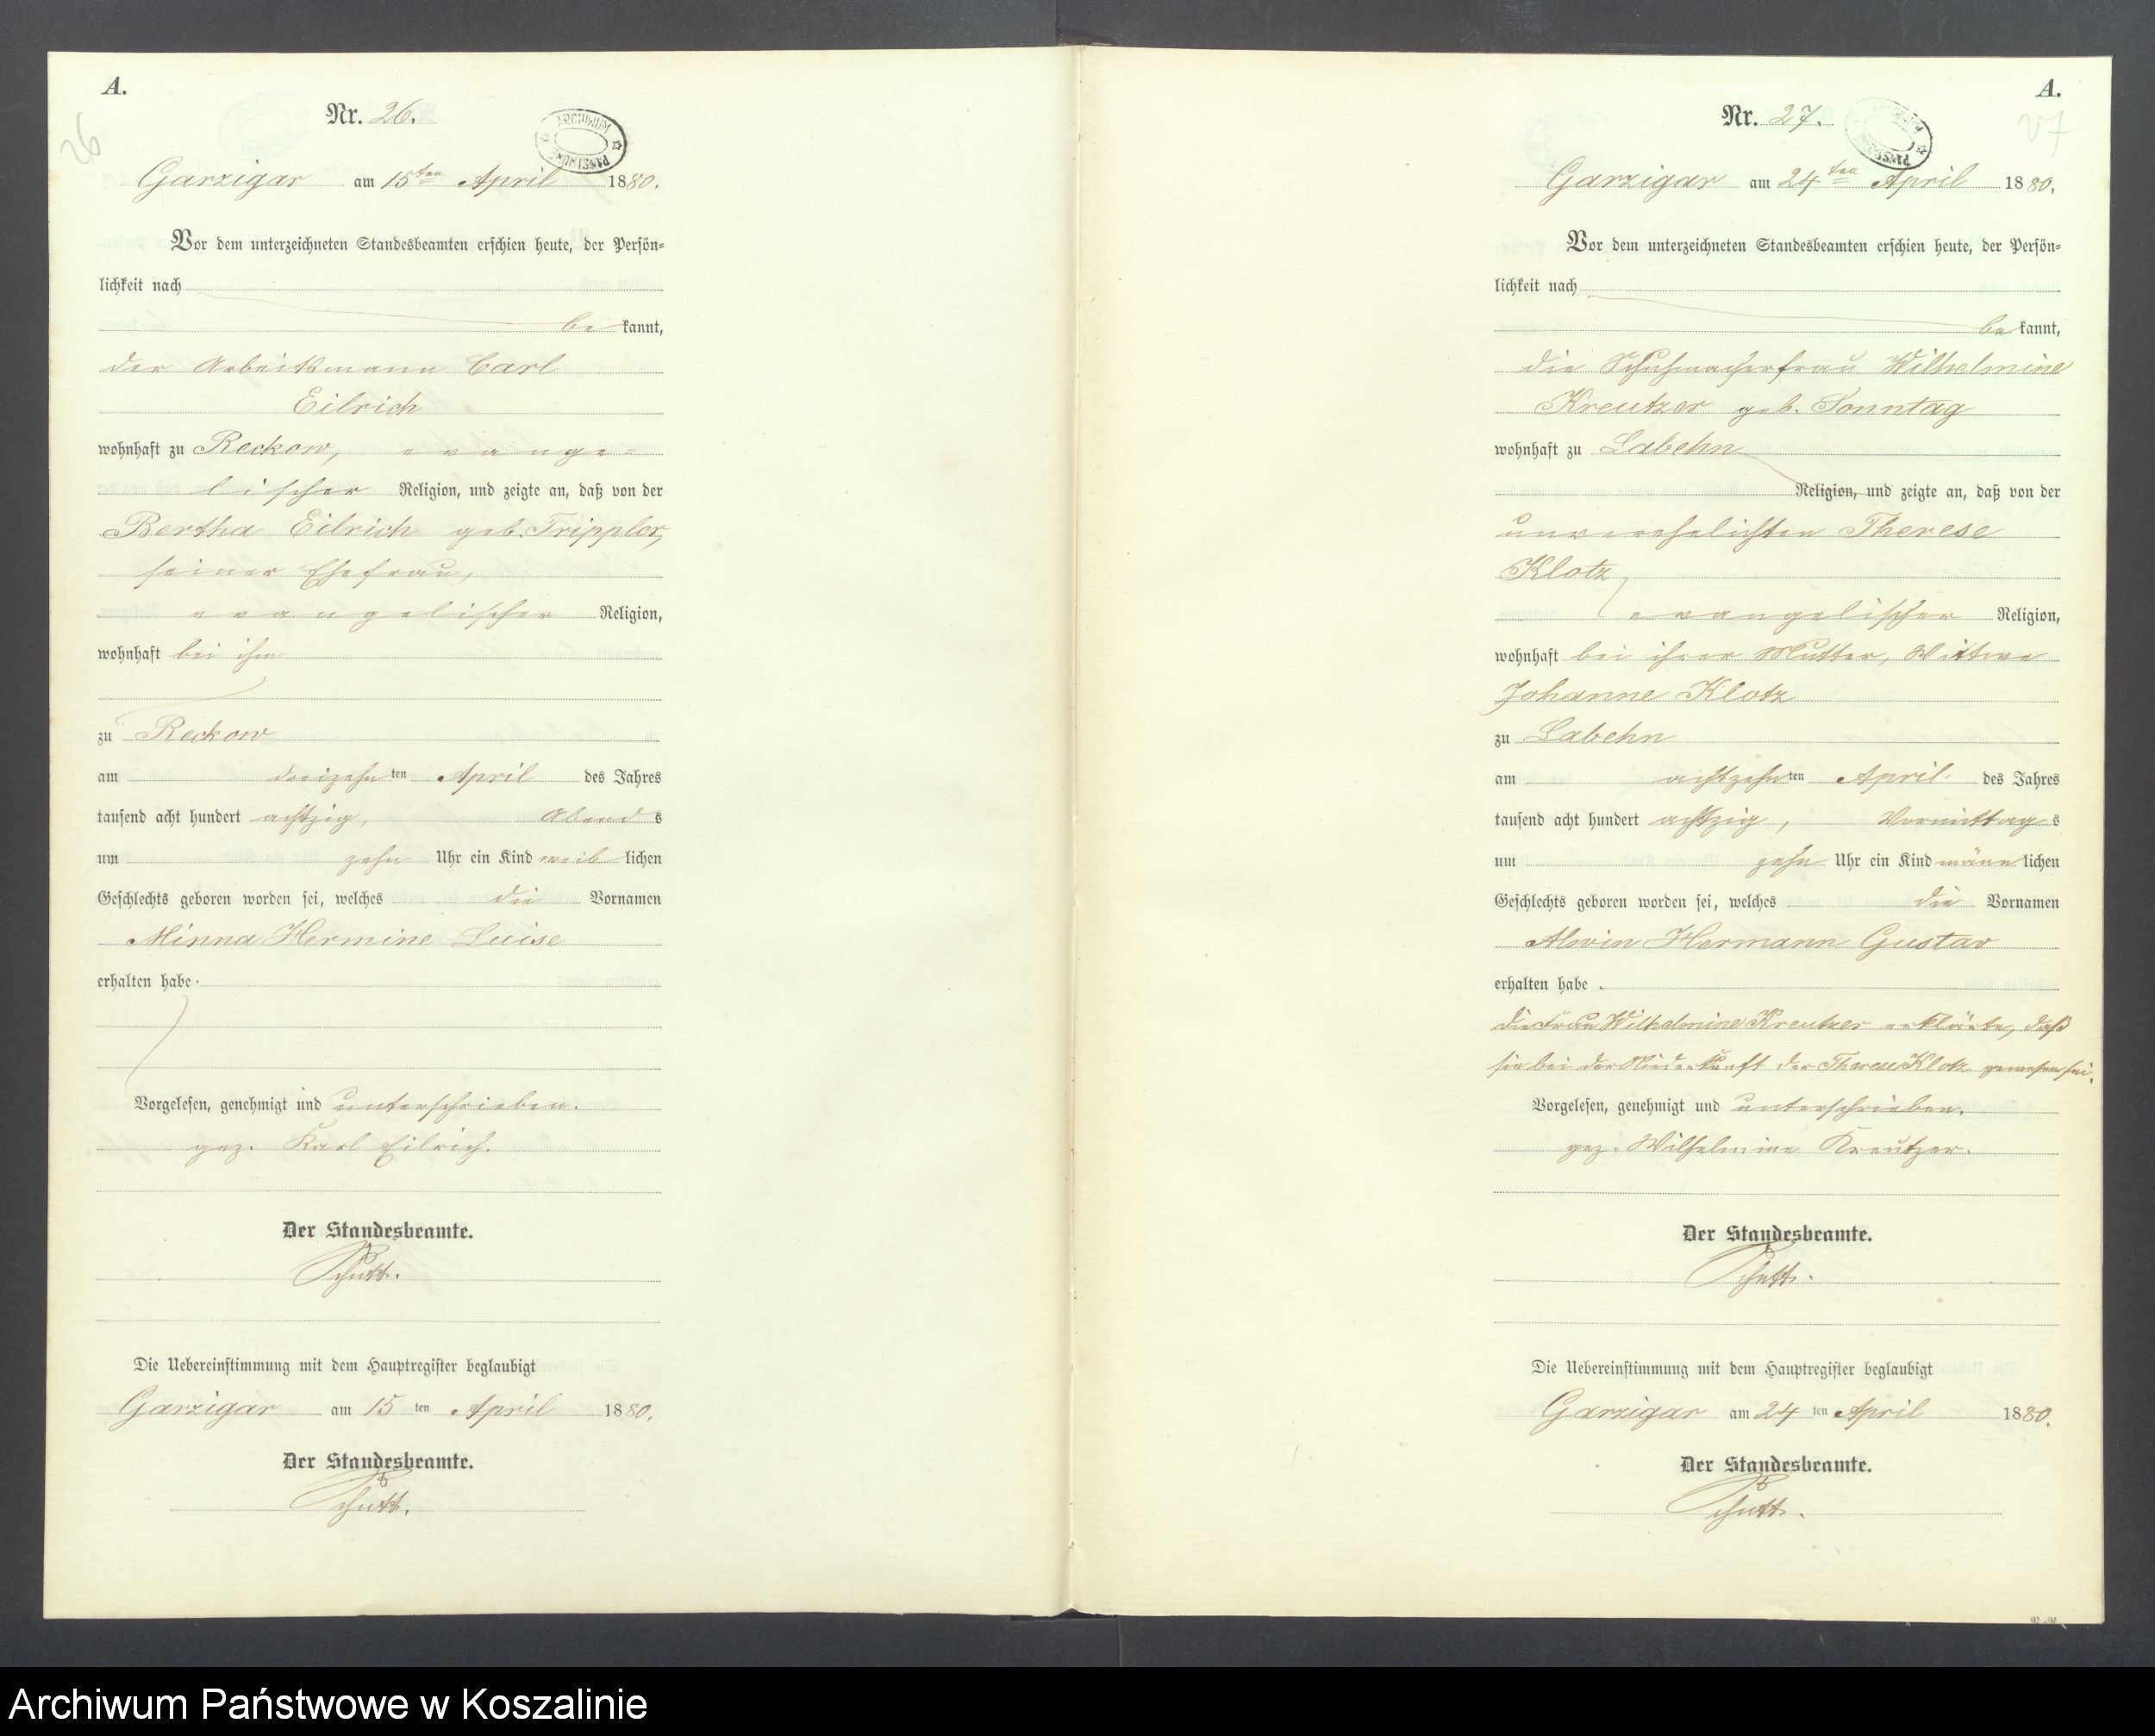 A.
26
Nr. 26.
ARCHIWUM PAŃSTWOWE
Garzigar am 15ten April 1880.
Vor dem unterzeichneten Standesbeamten erschien heute, der Persön=
lichkeit nach
be kannt,
der Arbeitsmann Carl
Eilrich
wohnhaft zu Reckow, evange=
lischer Religion, und zeigte an, daß von der
Bertha Eilrich geb. Trippler,
seiner Ehefrau,
evangelischer Religion,
wohnhaft bei ihm
zu Reckow
am dreizehn ten April des Jahres
tausend acht hundert achtzig, Abend s
um zehn Uhr ein Kind weib lichen
Geschlechts geboren worden sei, welches die Vornamen
Minna Hermine Luise
erhalten habe.
Vorgelesen, genehmigt und unterschrieben.
gez. Karl Eilrich.
Der Standesbeamte.
Schutt.
Die Uebereinstimmung mit dem Hauptregister beglaubigt
Garzigar am 15 ten April 1880.
Der Standesbeamte.
Schutt.
A.
27
Nr. 27.
Garzigar am 24ten April 1880.
Vor dem unterzeichneten Standesbeamten erschien heute, der Persön=
lichkeit nach
be kannt,
die Schuhmacherfrau Wilhelmine
Kreutzer geb. Sonntag
wohnhaft zu Labehn
Religion, und zeigte an, daß von der
unverehelichten Therese
Klotz
evangelischer Religion,
wohnhaft bei ihrer Mutter, Wittwe
Johanne Klotz
zu Labehn
am achtzehn ten April des Jahres
tausend acht hundert achtzig, Vormittag s
um zehn Uhr ein Kind männ lichen
Geschlechts geboren worden sei, welches die Vornamen
Alwin Hermann Gustav
erhalten habe.
Die Frau Wilhelmine Kreutzer erklärte, daß
sie bei der Niederkunft der Therese Klotz gewesen sei.
Vorgelesen, genehmigt und unterschrieben.
gez. Wilhelmine Kreutzer.
Der Standesbeamte.
Schutt.
Die Uebereinstimmung mit dem Hauptregister beglaubigt
Garzigar am 24 ten April 1880.
Der Standesbeamte.
Schutt.
Archiwum Państwowe w Koszalinie